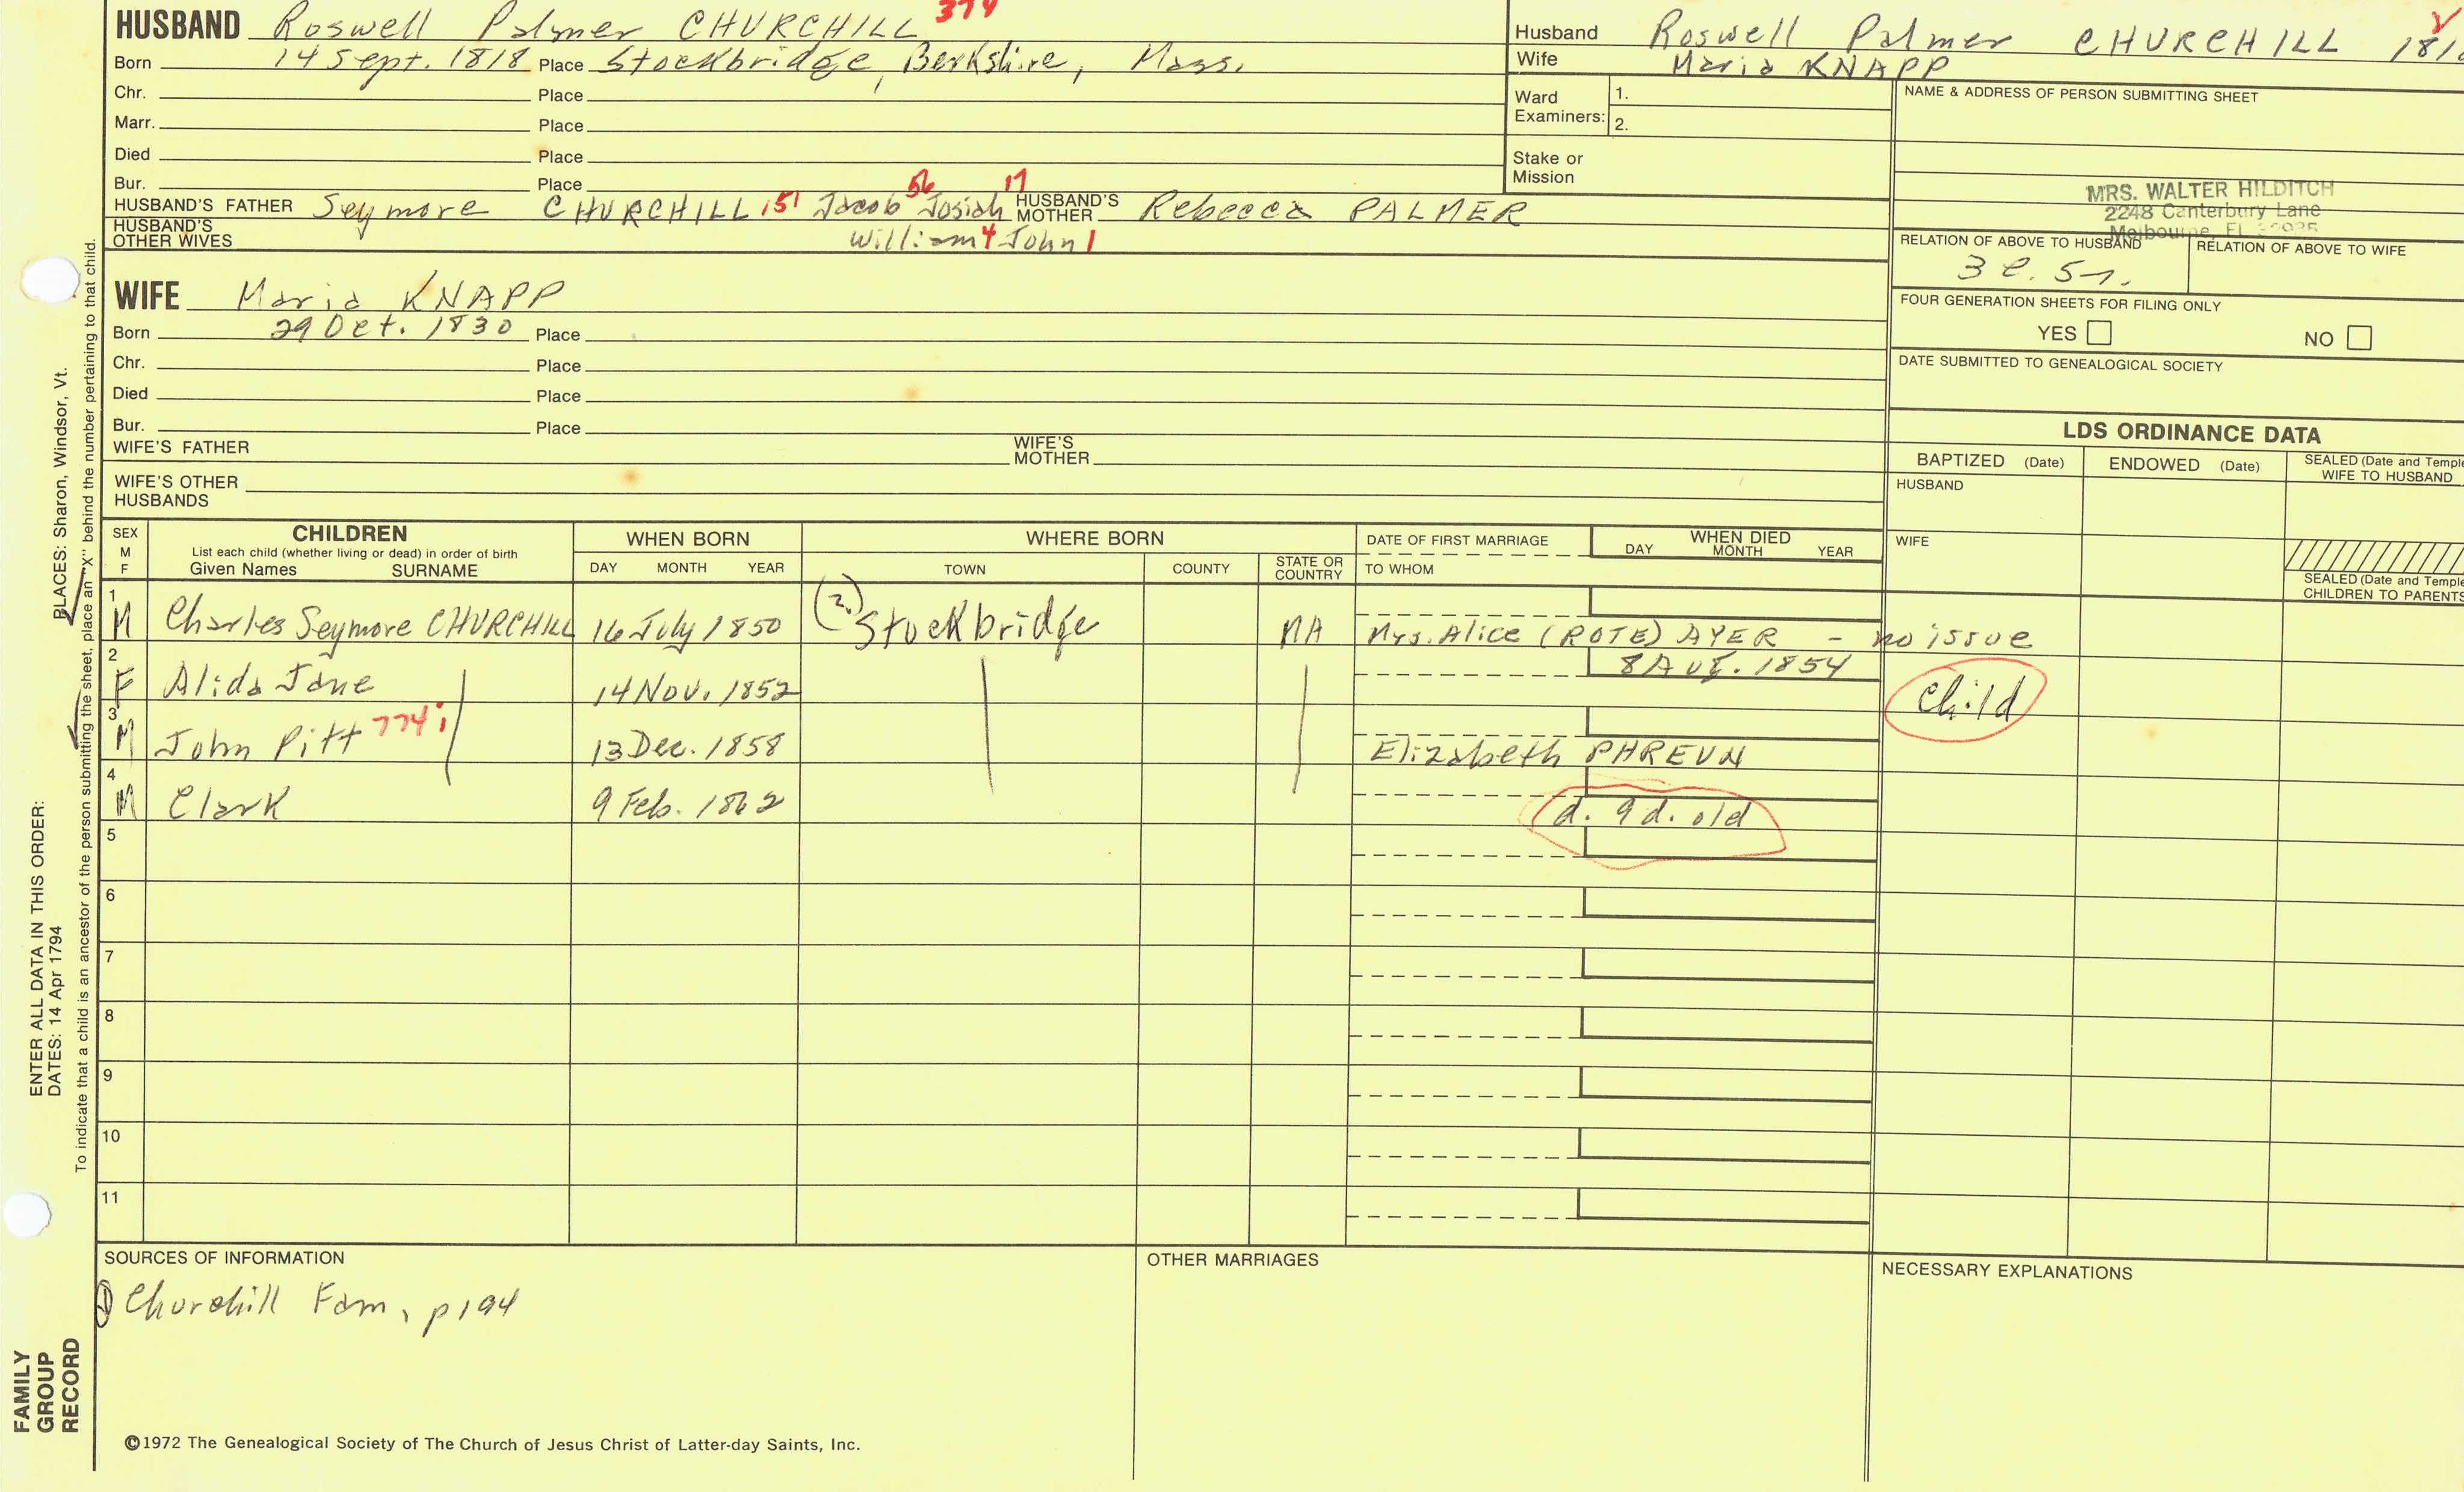 HUSBAND Roswell Palmer CHURCHILL 374
Born 14 Sept. 1818 Place Stockbridge, Berkshire, Mass.
Chr. Place
Marr. Place
Died Place
Bur. Place
HUSBAND'S FATHER Seymore CHURCHILL 151 Jacob 56 Josiah 17 HUSBAND'S MOTHER Rebecca PALMER
HUSBAND'S OTHER WIVES William 4 John 1
Husband Roswell Palmer CHURCHILL 181
Wife Maria KNAPP
Ward Examiners: 1.
2.
Stake or Mission
NAME & ADDRESS OF PERSON SUBMITTING SHEET
MRS. WALTER HILDITCH
2248 Canterbury Lane
Melbourne, FL
RELATION OF ABOVE TO HUSBAND RELATION OF ABOVE TO WIFE
FOUR GENERATION SHEETS FOR FILING ONLY
YES NO
DATE SUBMITTED TO GENEALOGICAL SOCIETY
WIFE Maria KNAPP
Born 29 Oct. 1830 Place
Chr. Place
Died Place
Bur. Place
WIFE'S FATHER WIFE'S MOTHER
WIFE'S OTHER HUSBANDS
LDS ORDINANCE DATA
BAPTIZED (Date) ENDOWED (Date) SEALED (Date and Temple
WIFE TO HUSBAND
HUSBAND
WIFE
SEALED (Date and Temple
CHILDREN TO PARENTS
SEX M F CHILDREN WHEN BORN WHERE BORN DATE OF FIRST MARRIAGE WHEN DIED
List each child (whether living or dead) in order of birth
Given Names SURNAME DAY MONTH YEAR TOWN COUNTY STATE OR COUNTRY TO WHOM DAY MONTH YEAR
1 M Charles Seymore CHURCHILL 16 July 1850 (2.) Stockbridge MA Mrs. Alice (ROTE) AYER - no issue
2 F Alida Jane 14 Nov. 1852 8 Aug. 1854 Child
3 M John Pitt 774 i 13 Dec. 1858 Elizabeth PHREVN
4 M Clark 9 Feb. 1862 d. 9 d. old
5
6
7
8
9
10
11
SOURCES OF INFORMATION
① Churchill Fam, p194
OTHER MARRIAGES
NECESSARY EXPLANATIONS
©1972 The Genealogical Society of The Church of Jesus Christ of Latter-day Saints, Inc.
FAMILY GROUP RECORD
ENTER ALL DATA IN THIS ORDER:
DATES: 14 Apr 1794
PLACES: Sharon, Windsor, Vt.
To indicate that a child is an ancestor of the person submitting the sheet, place an "X" behind the number pertaining to that child.